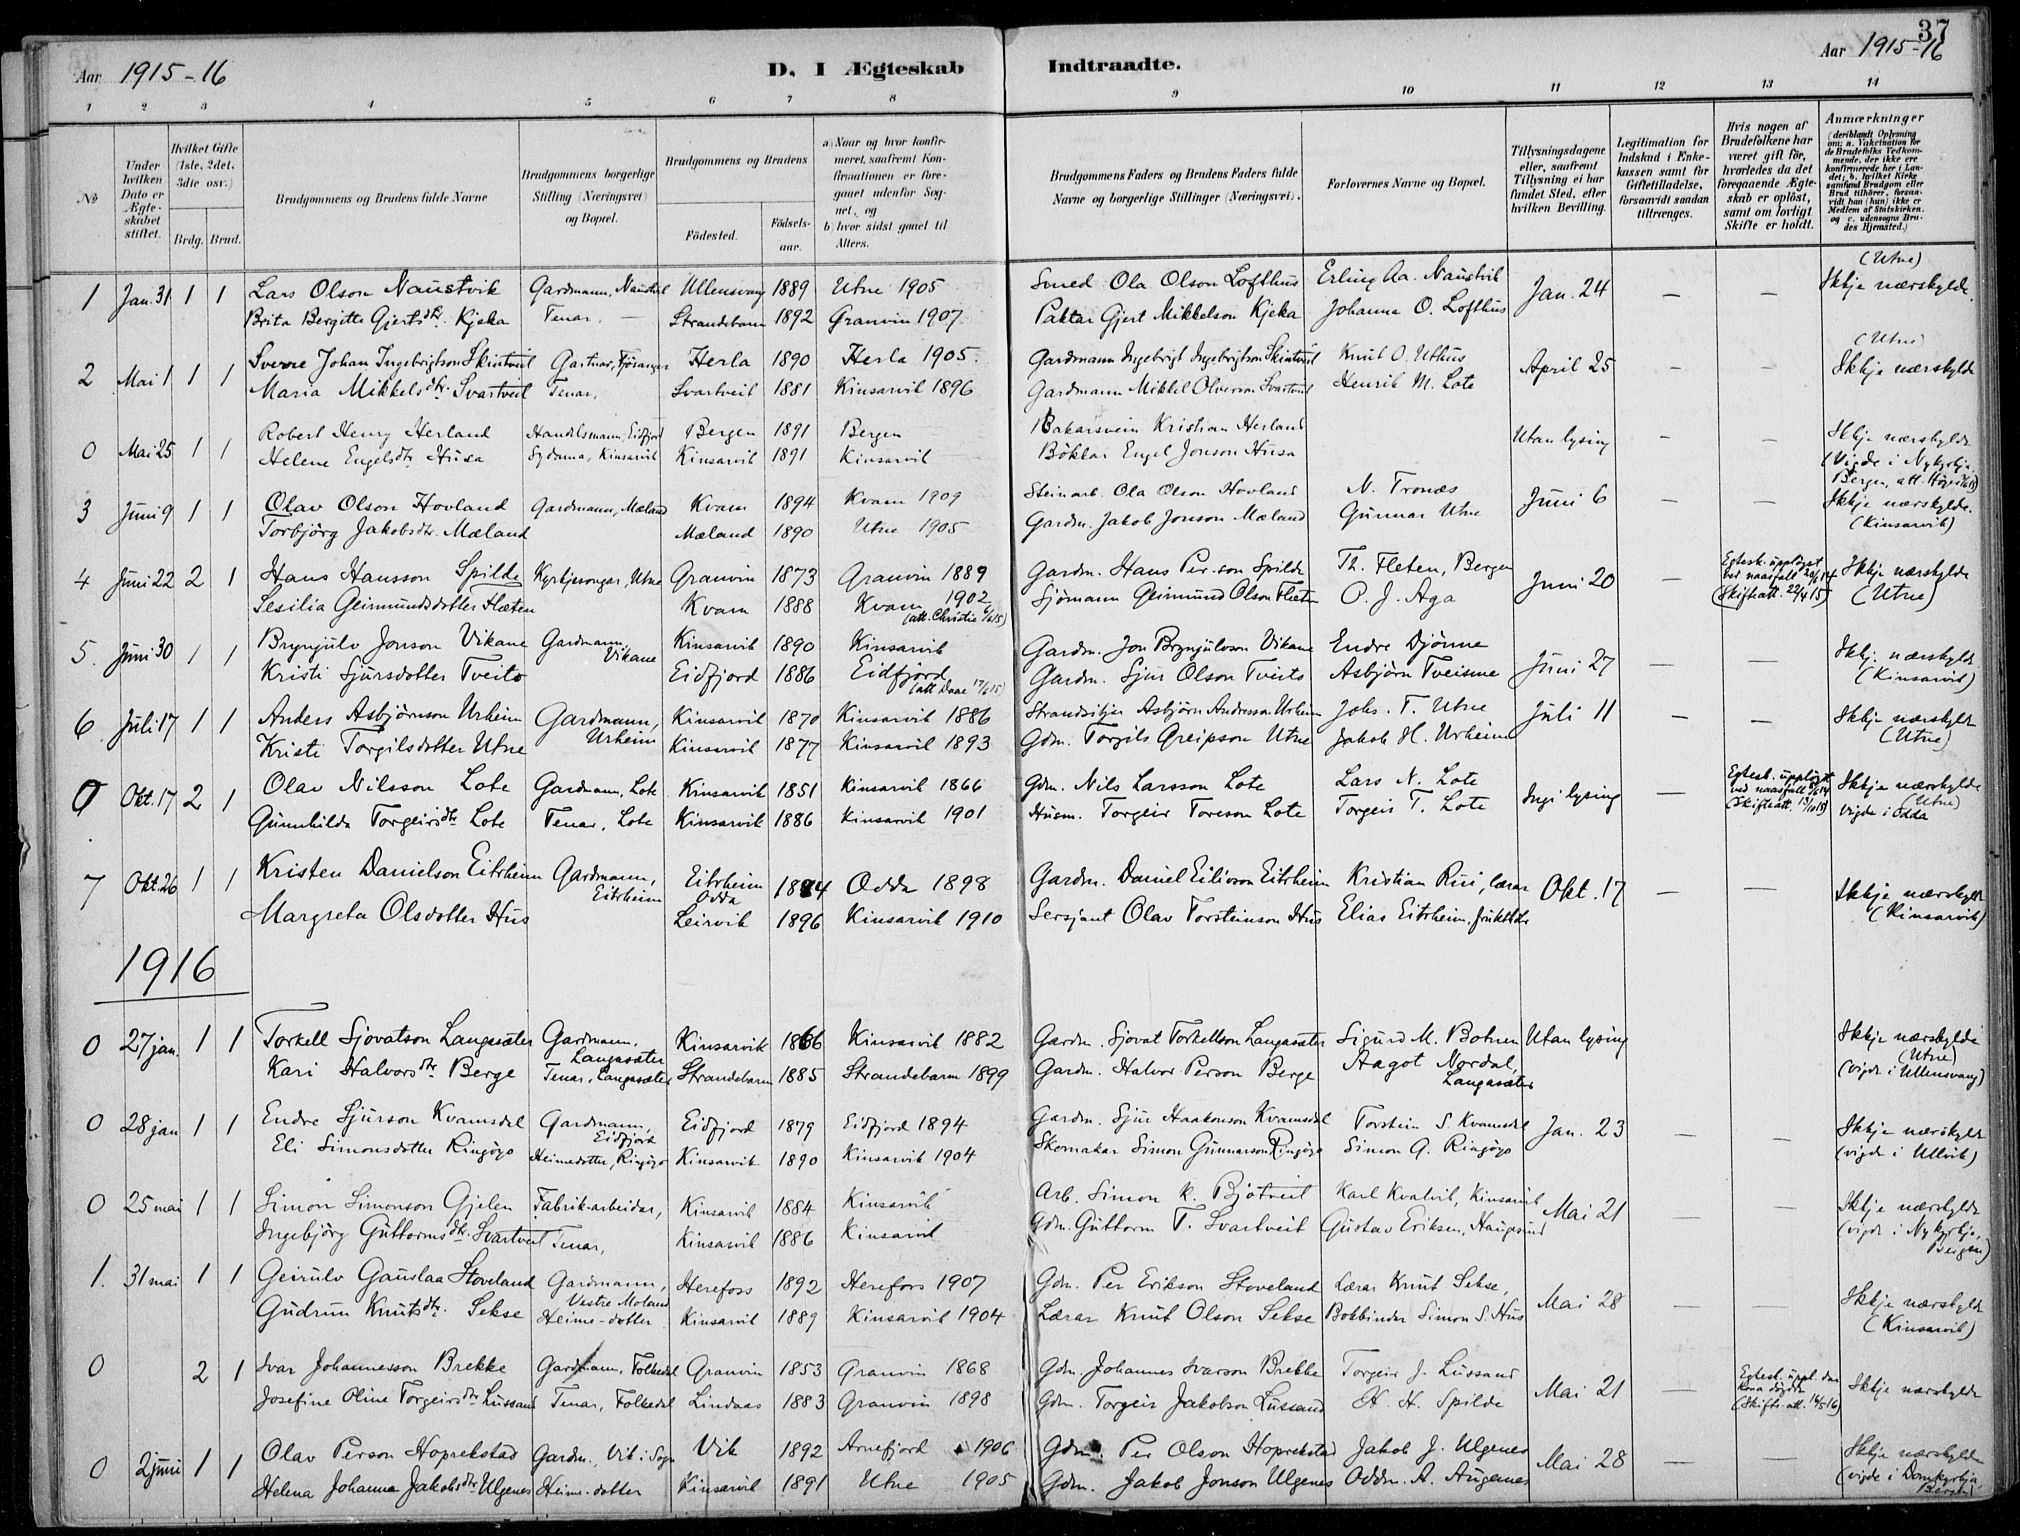 37
Aar 1915-16
D. I Ægteskab Indtraadte.
Aar 1915-16
1 2 3 4 5 6 7 8 9 10 11 12 13 14
No
Under hvilken Dato er Ægteskabet stiftet.
Hvilket Gifte (1ste, 2det, 3die osv.)
Brdg. Brud.
Brudgommens og Brudens fulde Navne
Brudgommens borgerlige Stilling (Næringsvei) og Bopæl.
Brudgommens og Brudens
Födested.
Födselsaar.
a) Naar og hvor konfirmeret, saafremt Konfirmationen er foregaaet udenfor Sognet, og
b) hvor sidst gaaet til Alters.
Brudgommens Faders og Brudens Faders fulde Navne og borgerlige Stillinger (Næringsvei).
Forlovernes Navne og Bopæl.
Tillysningsdagene eller, saafremt Tillysning ei har fundet Sted, efter hvilken Bevilling.
Legitimation for Indskud i Enkekassen samt for Giftetilladelse, forsaavidt saadan tiltrænges.
Hvis nogen af Brudefolkene har været gift för, hvorledes da det foregaaende Ægteskab er oplöst, samt om lovligt Skifte er holdt.
Anmærkninger
(deriblandt Oplysning om: a. Vakcination for de Brudefolks Vedkommende, der ikke ere konfirmerede her i Landet; b. hvilket Kirkesamfund Brudgom eller Brud tilhörer, forsaavidt han (hun) ikke er Medlem af Statskirken, og c. udensogns Brudes Hjemsted.)
1 Jan. 31 1 1 Lars Olson Naustvik Gardmann, Naustvik Ullensvang 1889 Utne 1905 Smed Ola Olson Lofthus Erling Aa. Naustvik Jan. 24 — — (Utne) Skkje nærskylde.
Brita Bergitte Gjertsdtr. Kjeka Tenar. — Strandebarm 1892 Granvin 1907 Paktar Gjert Mikkelson Kjeka Johanna O. Lofthus
2 Mai 1 1 1 Sverre Johan Ingebrigtson Skintveit Gartnar, Fjösanger Herla 1890 Herla 1905. Gardmann Ingebrigt Ingebrigtson Skintveit Knut O. Uthus April 25 - - (Utne) Skkje nærskylde
Maria Mikkelsdtr. Svartveit Tenar, Svartveit 1881 Kinsarvik 1896 Gardmann Mikkel Olverson Svartveit Henrik M. Lote
0 Mai 25 1 1 Robert Henry Herland Handelsmann, Eidfjord Bergen 1891 Bergen Bakarsvein Kristian Herland Utan lysing - - Skkje nærskylde
Helene Engelsdtr. Husa Sydama, Kinsarvik Kinsarvik 1891 Kinsarvik Bökkar Engel Jonson Husa (Vigde i Nykyrkja, Bergen, att.
3 Juni 9 1 1 Olav Olson Hovland Gardmann, Mæland Kvam 1894 Kvam 1909 Steinarb. Ola Olson Hovland N. Tronæs Juni 6 — — Skkje nærskylde.
Torbjörg Jakobsdtr. Mæland Mæland 1890 Utne 1905 Gardm. Jakob Jonson Mæland Gunnar Utne (Kinsarvik)
4 Juni 22 2 1 Hans Hansson Spilde Kyrkjesongar, Utne Granvin 1873 Granvin 1889 Gardm. Hans Per.son Spilde Th. Fleten, Bergen Juni 20 — Egtesk. upplöyst ved naasfall 20/6 14 (Skifteatt. 22/4 15) Skkje nærskylde
Sesilia Geirmundsdotter Flæten Kvam 1888 Kvam 1902 (att. Christie Sjömann Geirmund Olson Flæten O. J. Aga (Utne)
5. Juni 30 1 1 Brynjulv Jonson Vikane Gardmann, Vikane Kinsarvik 1890 Kinsarvik Gardm. Jon Brynjulvson Vikane Endre Djönne Juni 27 — — Skkje nærskyld
Kristi Sjursdotter Tveito Eidfjord 1886 Eidfjord (att Daae 17/6 15) Gardm. Sjur Olson Tveito Asbjörn Tveisme (Kinsarvik)
6. Juli 17 1 1 Anders Asbjørnson Urheim Gardmann, Urheim Kinsarvik 1870 Kinsarvik 1886 Strandsitjar Asbjörn Andersson Urheim Johs. T. Utne Juli 11 — — Skkje nærskyld
Kristi Torgilsdotter Utne Kinsarvik 1877 Kinsarvik 1893 Gdm. Torgils Greipson Utne Jakob H. Urheim (Utne)
0 Okt. 17 2 1 Olav Nilsson Lote Gardmann, Lote Kinsarvik 1851 Kinsarvik 1866 Gdm. Nils Larsson Lote Lars N. Lote Ingi lysing — Egtesk. upplöyst ved naasfall (Skifteatt. Skkje nærskylde (Utne)
Gunnhilda Torgeirsdtr Lote Tenar, Lote Kinsarvik 1886 Kinsarvik 1901 Husm. Torgeir Toreson Lote Torgeir T. Lote vigde i Odda
7 Okt. 26 1 1 Kristen Danielson Eitrheim Gardmann, Eitrheim Eitrheim Odda 1884 Odda 1898 Gardm. Daniel Eilivson Eitrheim Kristian Rui, lærar Okt. 17 — — Skkje nærskyld
Margreta Olsdotter Hus Leirvik 1896 Kinsarvik 1910 Sersjant Olav Torsteinson Hus Elias Eitrheim, (Kinsarvik)
1916
0 27 jan. 1 1 Torkell Sjovatson Langasæter Gardmann, Langasæter Kinsarvik 1866 Kinsarvik 1882 Gardm. Sjovat Torkellson Langasæter Sigurd M. Botnen Utan lysing Skkje nærskylde (Utne)
Kari Halvorsdtr Berge Tenar, Langasæter Strandebarm 1885 Strandebarm 1899 Gardm. Halvor Person Berge Aagot Nordal, Langasæter (vigde i Ullensvang)
0 28 jan 1 1 Endre Sjurson Kvamsdal Gardmann, Eidfjord Eidfjord 1879 Eidfjord 1894 Gardm. Sjur Haakonson Kvamsdal Torstein S. Kvamsdal Jan. 23 — — Skkje nærskyld
Eli Simonsdotter Ringöyo Heimedotter, Ringöyo Kinsarvik 1890 Kinsarvik 1904 Skomakar Simon Gunnarson Ringöyo Simon G. Ringöyo (vigde i Ulvik)
0 25 mai 1 1 Simon Simonson Gjelen Fabrik-arbeidar, Kinsarvik 1884 Kinsarvik Arb. Simon K. Bjotveit Karl Kvalvik, Kinsarvik Mai 21 — — Skkje nærskylde
Ingebjörg Guttormsdtr. Svartveit Tenar, Kinsarvik 1886 Kinsarvik Gdm. Guttorm T. Svartveit Gustav Eriksen, Haugesund (vigde i Nykyrkja, Bergen)
1. 31 mai 1 1 Geirulv Gauslaa Stoveland Gardmann, Vestre Moland Herefoss 1892 Herefoss 1907 Gdm. Per Erikson Stoveland Lærar Knut Sekse, Mai 28 — Skkje nærskyld
Gudrun Knutsdtr. Sekse Heime-dotter Kinsarvik 1889 Kinsarvik 1904 Lærar Knut Olson Sekse Bokbindar Simon S. Hus (Kinsarvik)
0 2 1 Ivar Johannesson Brekke Gardmann, Folkedal Granvin 1853 Granvin 1868 Gdm. Johannes Ivarson Brekke Torgeir J. Lussand Mai 21 — Egtesk. uppl. daa kona döydde (Skifte-att. 16/5 16) Skkje nærskylde
Josefine Oline Torgeirsdtr Lussand Tenar, Folkedal Lindaas 1883 Granvin 1898 Gdm. Torgeir Jakobson Lussand H. H. Spilde
0 2 juni 1 1 Olav Person Hoprekstad Gardm. Vik i Sogn Vik 1892 Arnefjord 1906 Gdm. Per Olson Hoprekstad Jakob J. Ulgenes Mai 28 — — Skkje nærskylde
Helena Johanna Jakobsdtr Ulgenes Heime-dotter Kinsarvik 1891 Utne 1905 Gdm. Jakob Jonson Ulgenes Oddm. A. Augenes (vigde i Domkyrkja Bergen)